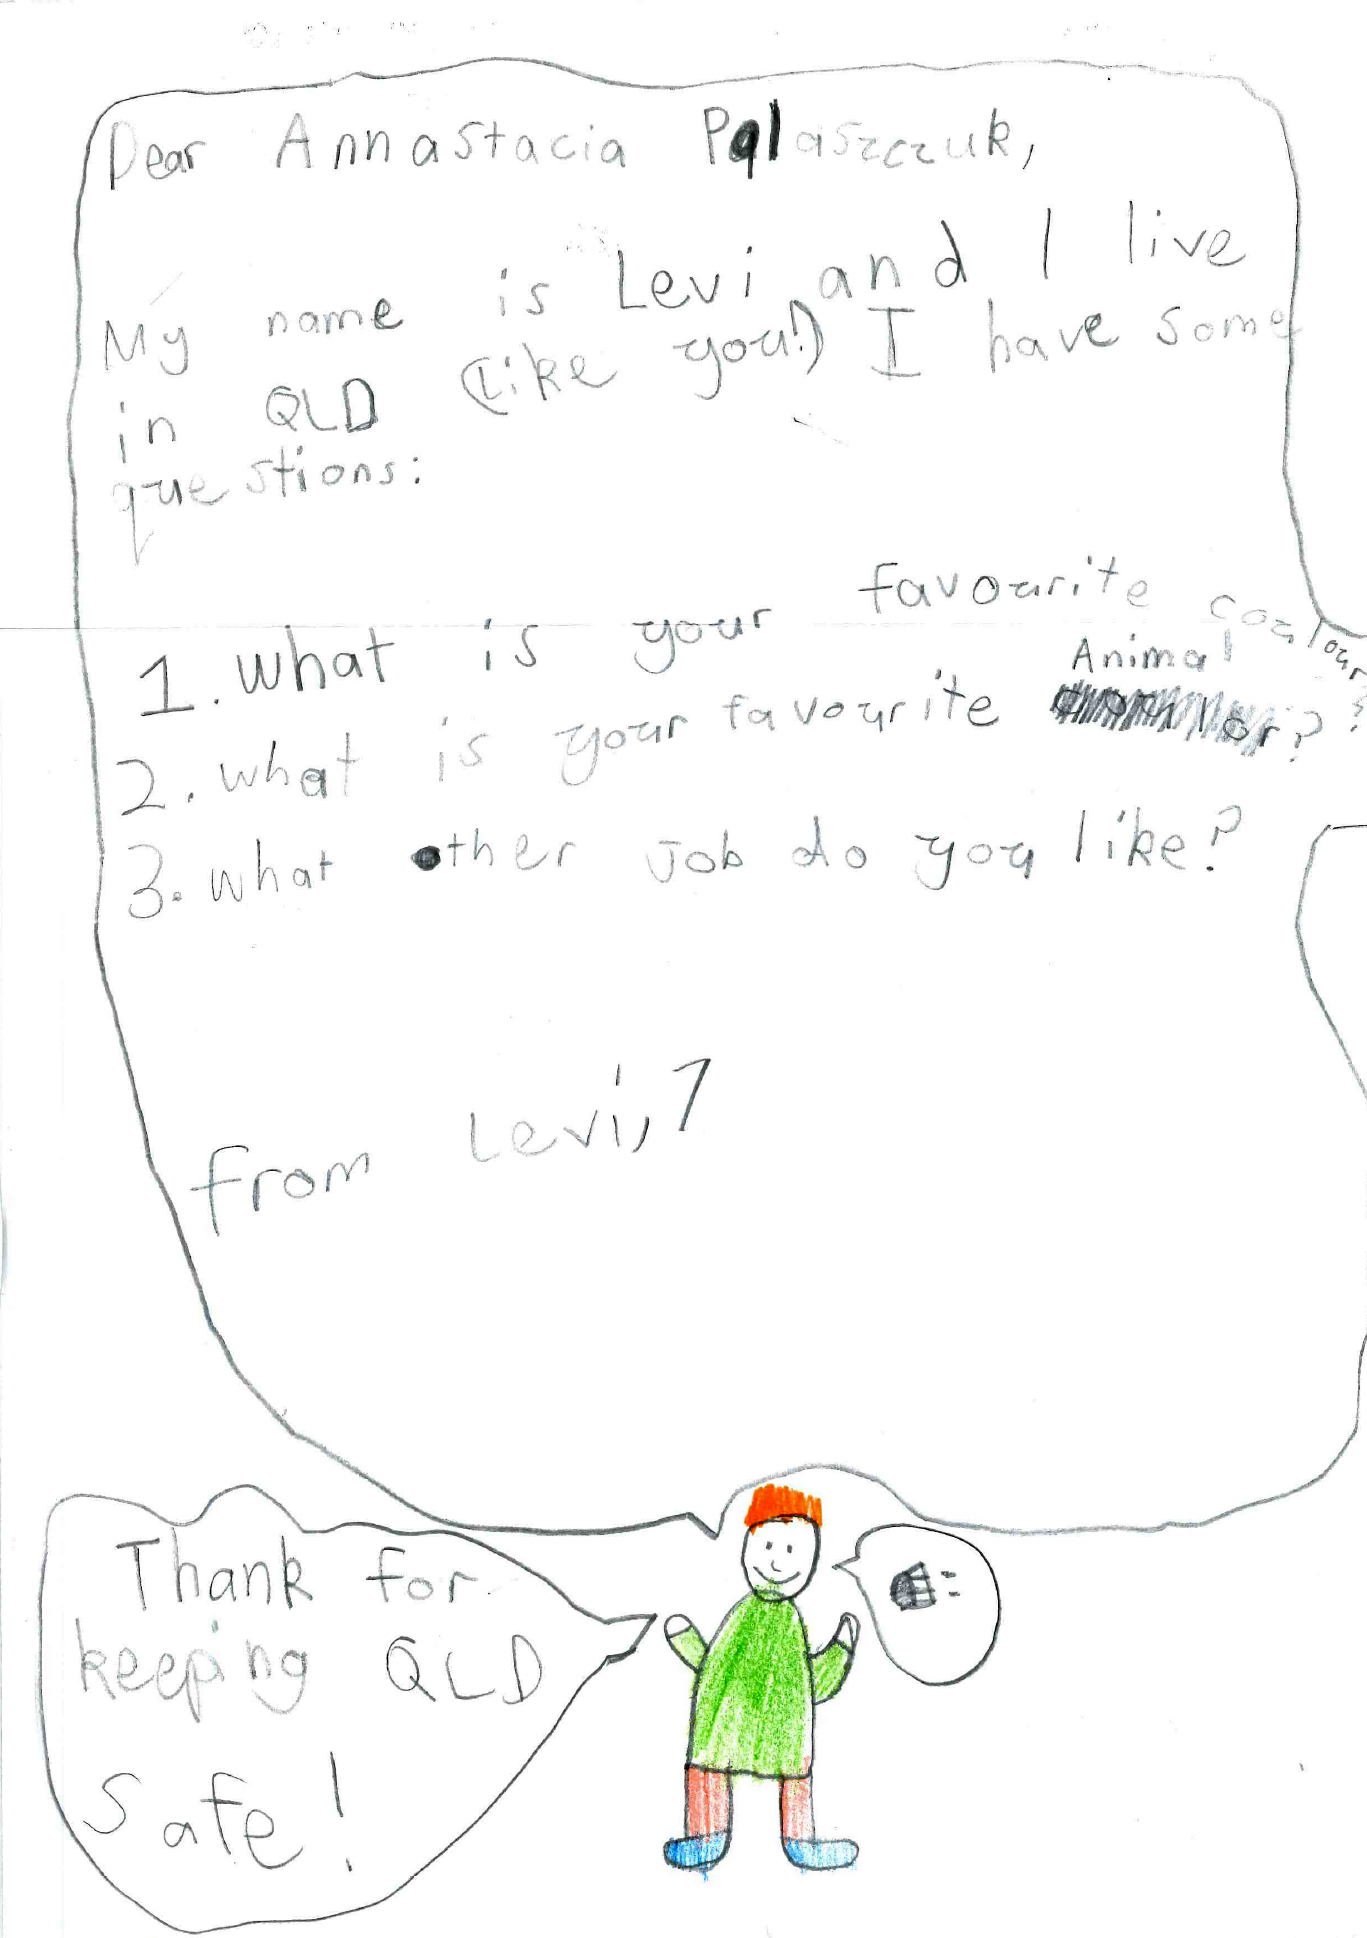 Dear Annastacia Palaszczuk,
My name is Levi and I live
in QLD (Like you!) I have some
questions:
1. what is your favourite coulour?
2. what is your favourite Animal?
3. what other job do you like?
from Levi, 7
Thank for
keeping QLD
Safe!